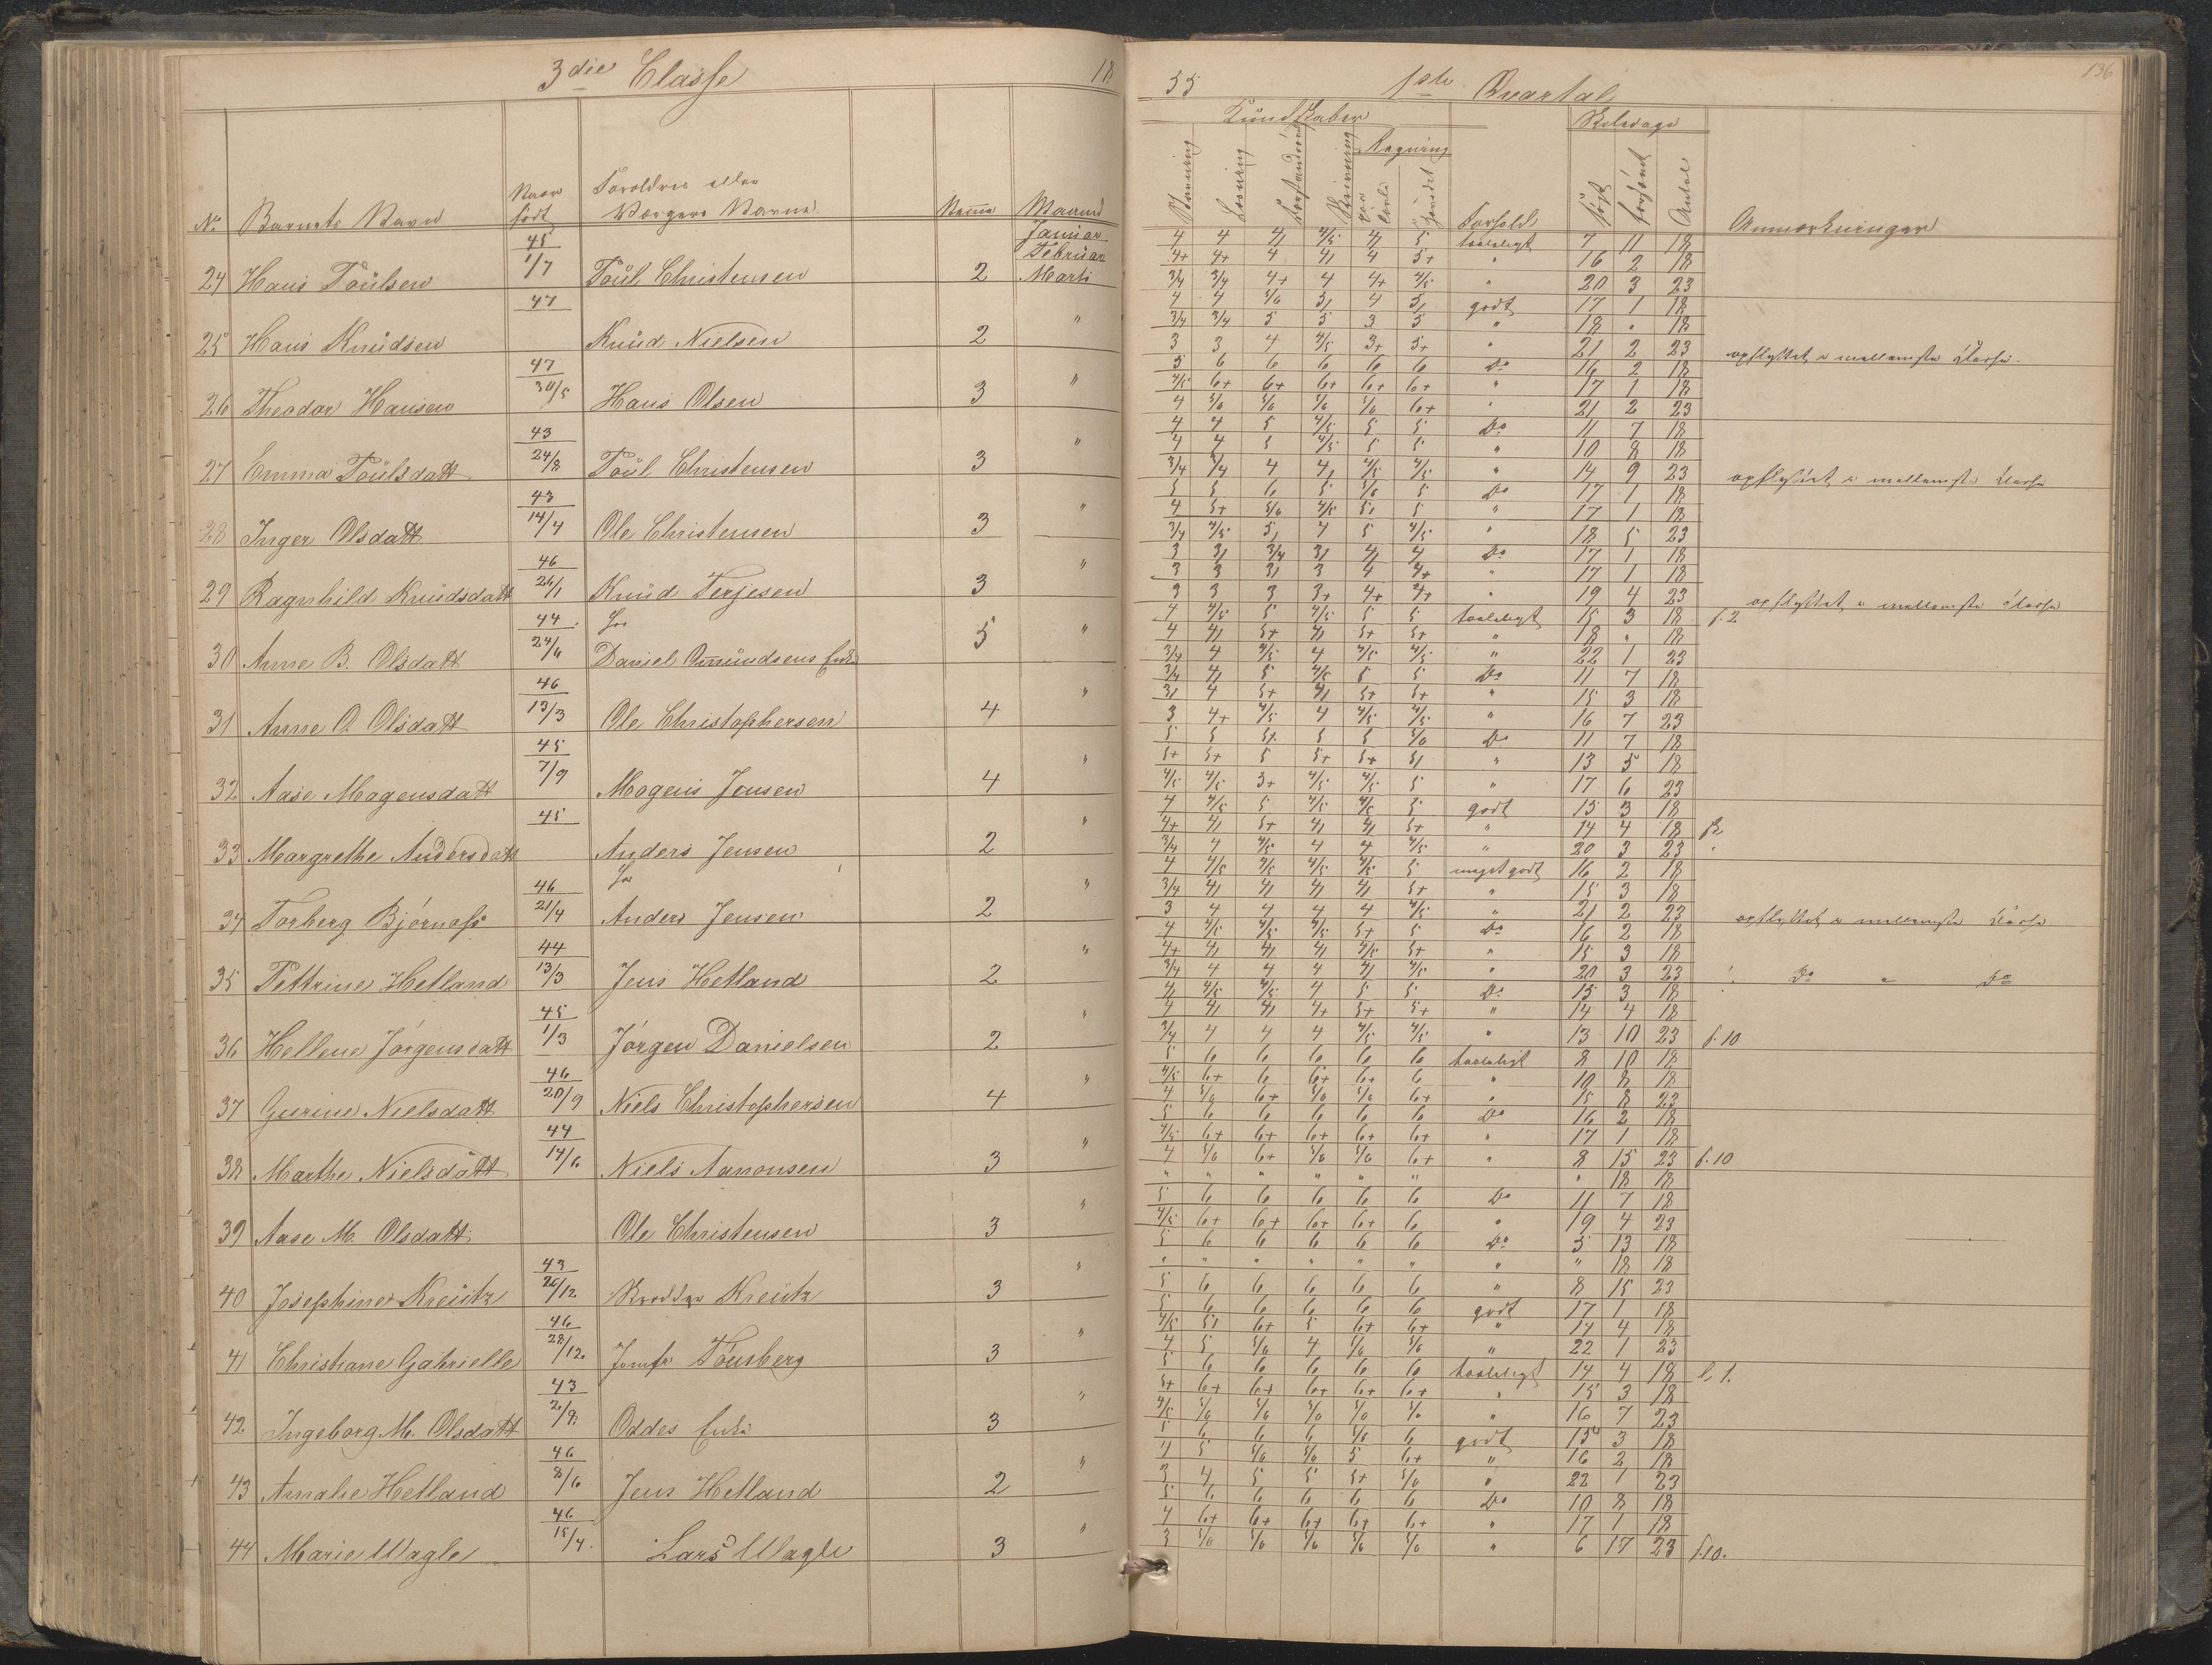 3die Classe 18
55 1ste Qvartal 136
Kundskaber Skoledage
Regning
No Barnets Navn Naar født Forældres eller Værgers Navne. Maaned Stavning Læsning Skrivning Forhold Søgt forsømt Antal Anmærkninger
45 Januar 4 4 4/5 5 taaleligt 7 11 18
Februar 4+ 4+ 4 4 5+ " 16 2 18
24 Hans Poülsen 1/7 Poül Christensen 2 Marti 3/4 3/4 4+ 4 4+ 4/5 " 20 3 23
47 4 4 5/6 4 godt 17 1 18
3/4 3/4 5 5 3 5 " 18 " 18
25 Hans Knüdsen Knüd Nielsen 2 " 3 3 4 4/5 3+ 5+ " 21 2 23 opflyttet i mellemste Classe.
47 5 6 6 6 6 6 Do 16 2 18
4/5 6+ 6+ 6+ 6+ 6+ " 17 1 18
26 Theodor Hansen 30/5 Hans Olsen 3 " 4 5/6 5/6 5/6 5/6 6+ " 21 2 23
43 4 4 5 4/5 5 5 Do 11 7 18
4 4 5 4/5 5 5 " 10 8 18
27 Emma Poülsdatt 24/8 Poül Christensen 3 " 3/4 3/4 4 4/5 4/5 " 14 9 23 opflyttet i mellemste Classe
43 5 5 6 5 5/6 5 Do 17 1 18
4 5+ 5/6 4/5 " 17 1 18
28 Inger Olsdatt 14/4 Ole Christensen 3 " 3/4 4/5 4 5 4/5 " 18 5 23
46 3 3/4 4 Do 17 1 18
3 3 3 4 4+ " 17 1 18
29 Ragnhild Knüdsdatt 26/1 Knüd Terjesen 3 " 3 3 3 3+ 4+ 4+ " 19 4 23 opflyttet i mellemste Classe
44 4 4/5 5 4/5 5 5 taaleligt 15 3 18 f. 2
4 5+ 5+ 5+ " 18 " 18
30 Anne B. Olsdatt 24/6 Daniel Omündsens Enke 5 " 3/4 4 4/5 4 4/5 4/5 " 22 1 23
46 3/4 5 4/5 5 5 Do 11 7 18
4 5+ 5+ 5+ " 15 3 18
31 Anne O. Olsdatt 13/3 Ole Christophersen 4 " 3 4+ 4/5 4 4/5 4/5 " 16 7 23
45 5 5 5 5 5/6 Do 11 7 18
5+ 5+ 5 5+ 5+ " 13 5 18
32 Aase Mogensdatt 7/9 Mogens Jensen 4 " 4/5 4/5 3+ 4/5 4/5 5 " 17 6 23
45 4 4/5 5 4/5 4/5 5 godt 15 3 18
4+ 5+ 5+ " 14 4 18
33 Margrethe Andersdatt Anders Jensen 2 " 3/4 4 4/5 4 4 4/5 " 20 3 23
46 4 4/5 4/5 4/5 4/5 5 meget godt 16 2 18
3/4 5+ " 15 3 18
34 Torberg Bjørnass 21/4 Anders Jensen 2 " 3 4 4 4 4 4/5 " 21 2 23 opflyttet i mellemste Classe
44 4 4/5 4/5 4/5 5+ 5 Do 16 2 18
4+ 4/5 5+ " 15 3 18
35 Pettrine Hetland 13/3 Jens Hetland 2 " 3/4 4 4 4 4/5 " 20 3 23 Do " Do
45 4/5 4/5 4 5 5 Do 15 3 18
4 4+ 5+ 5+ " 14 4 18
36 Hellene Jørgensdatt 1/3 Jørgen Danielsen 2 " 3/4 4 4 4 4/5 4/5 " 13 10 23 f. 10
46 5 6 6 6 6 6 taaleligt 8 10 18
4/5 6+ 6 6+ 6+ 6 " 10 8 18
37 Gurine Nielsdatt 20/9 Niels Christophersen 4 " 4 5/6 6+ 5/6 5/6 6+ " 15 8 23
44 5 6 6 6 6 6 Do 16 2 18
4/5 6+ 6+ 6+ 6+ 6+ " 17 1 18
38 Marthe Nielsdatt 14/6 Niels Aanonsen 3 " 4 5/6 6+ 5/6 5/6 6+ " 8 15 23 f. 10
" " " " " " " 18 18
5 6 6 6 6 6 Do 11 7 18
39 Aase M. Olsdatt Ole Christensen 3 " 4/5 6+ 6+ 6+ 6+ 6 " 19 4 23
43 5 6 6 6 6 6 Do 5 13 18
" " " " " " " " 18 18
40 Josephine Kreütz 26/12 Kreütz 3 " 5 6 6 6 6 6 " 8 15 23
46 5 6 6 6 6 6 godt 17 1 18
4/5 6+ 5 6+ 6+ " 14 4 18
41 Christiane Gabrielle 28/12. Jomfr Tönsberg 3 " 4 5 5/6 4 5/6 5/6 " 22 1 23
43 5 6 6 6 6 6 taaleligt 14 4 18
5+ 6+ 6+ 6+ 6+ 6+ " 15 3 18
42 Ingeborg M. Olsdatt 2/8 Oddes Enke 3 " 4/5 5/6 5/6 5/6 5/6 5/6 " 16 7 23
46 5 6 6 6 5/6 6 godt 15 3 18
4 5 5/6 5/6 5 6+ " 16 2 18
43 Amalie Hetland 8/6 Jens Hetland 2 " 3 4 5 5 5+ 5/6 " 22 1 23
46 5 6 6 6 6 6 Do 10 8 18
4 6+ 6+ 6+ 6+ 6+ " 17 1 18
44 Marie Wagle 15/4. Lars Wagle 3 " 3 5/6 5/6 5/6 5/6 5/6 " 6 17 23 f 10.